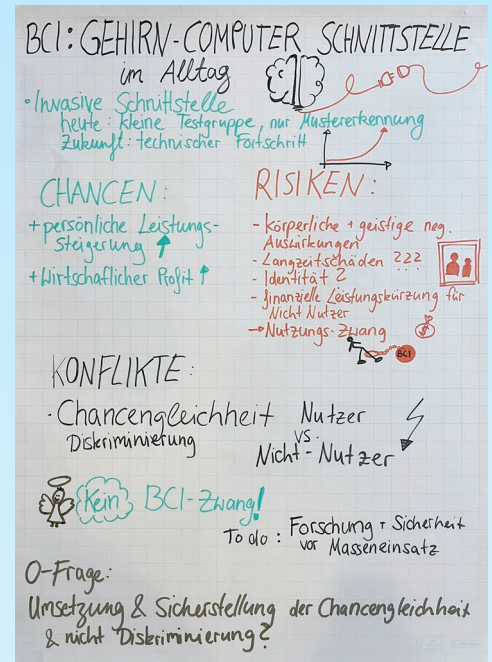 BCI: GEHIRN-COMPUTER SCHNITTSTELLE
im Alltag
• Invasive Schnittstelle
heute: kleine Testgruppe, nur Mustererkennung
Zukunft: technischer Fortschritt
CHANCEN:
+ persönliche Leistungs-
Steigerung ↑
+ Wirtschaflicher Profit ↑
RISIKEN:
- körperliche + geistige neg.
Auswirkungen
- Langzeitschäden ???
- Identität ?
- finanzielle Leistungskürzung für
Nicht Nutzer
→ Nutzungs-Zwang
$
BCI
KONFLIKTE:
· Chancengleichheit
Diskriminierung
Nutzer
VS.
Nicht-Nutzer
Kein BCI-Zwang!
To do: Forschung + Sicherheit
vor Masseneinsatz
O-Frage:
Umsetzung & Sicherstellung der Chancengleichheit
& nicht Diskriminierung?